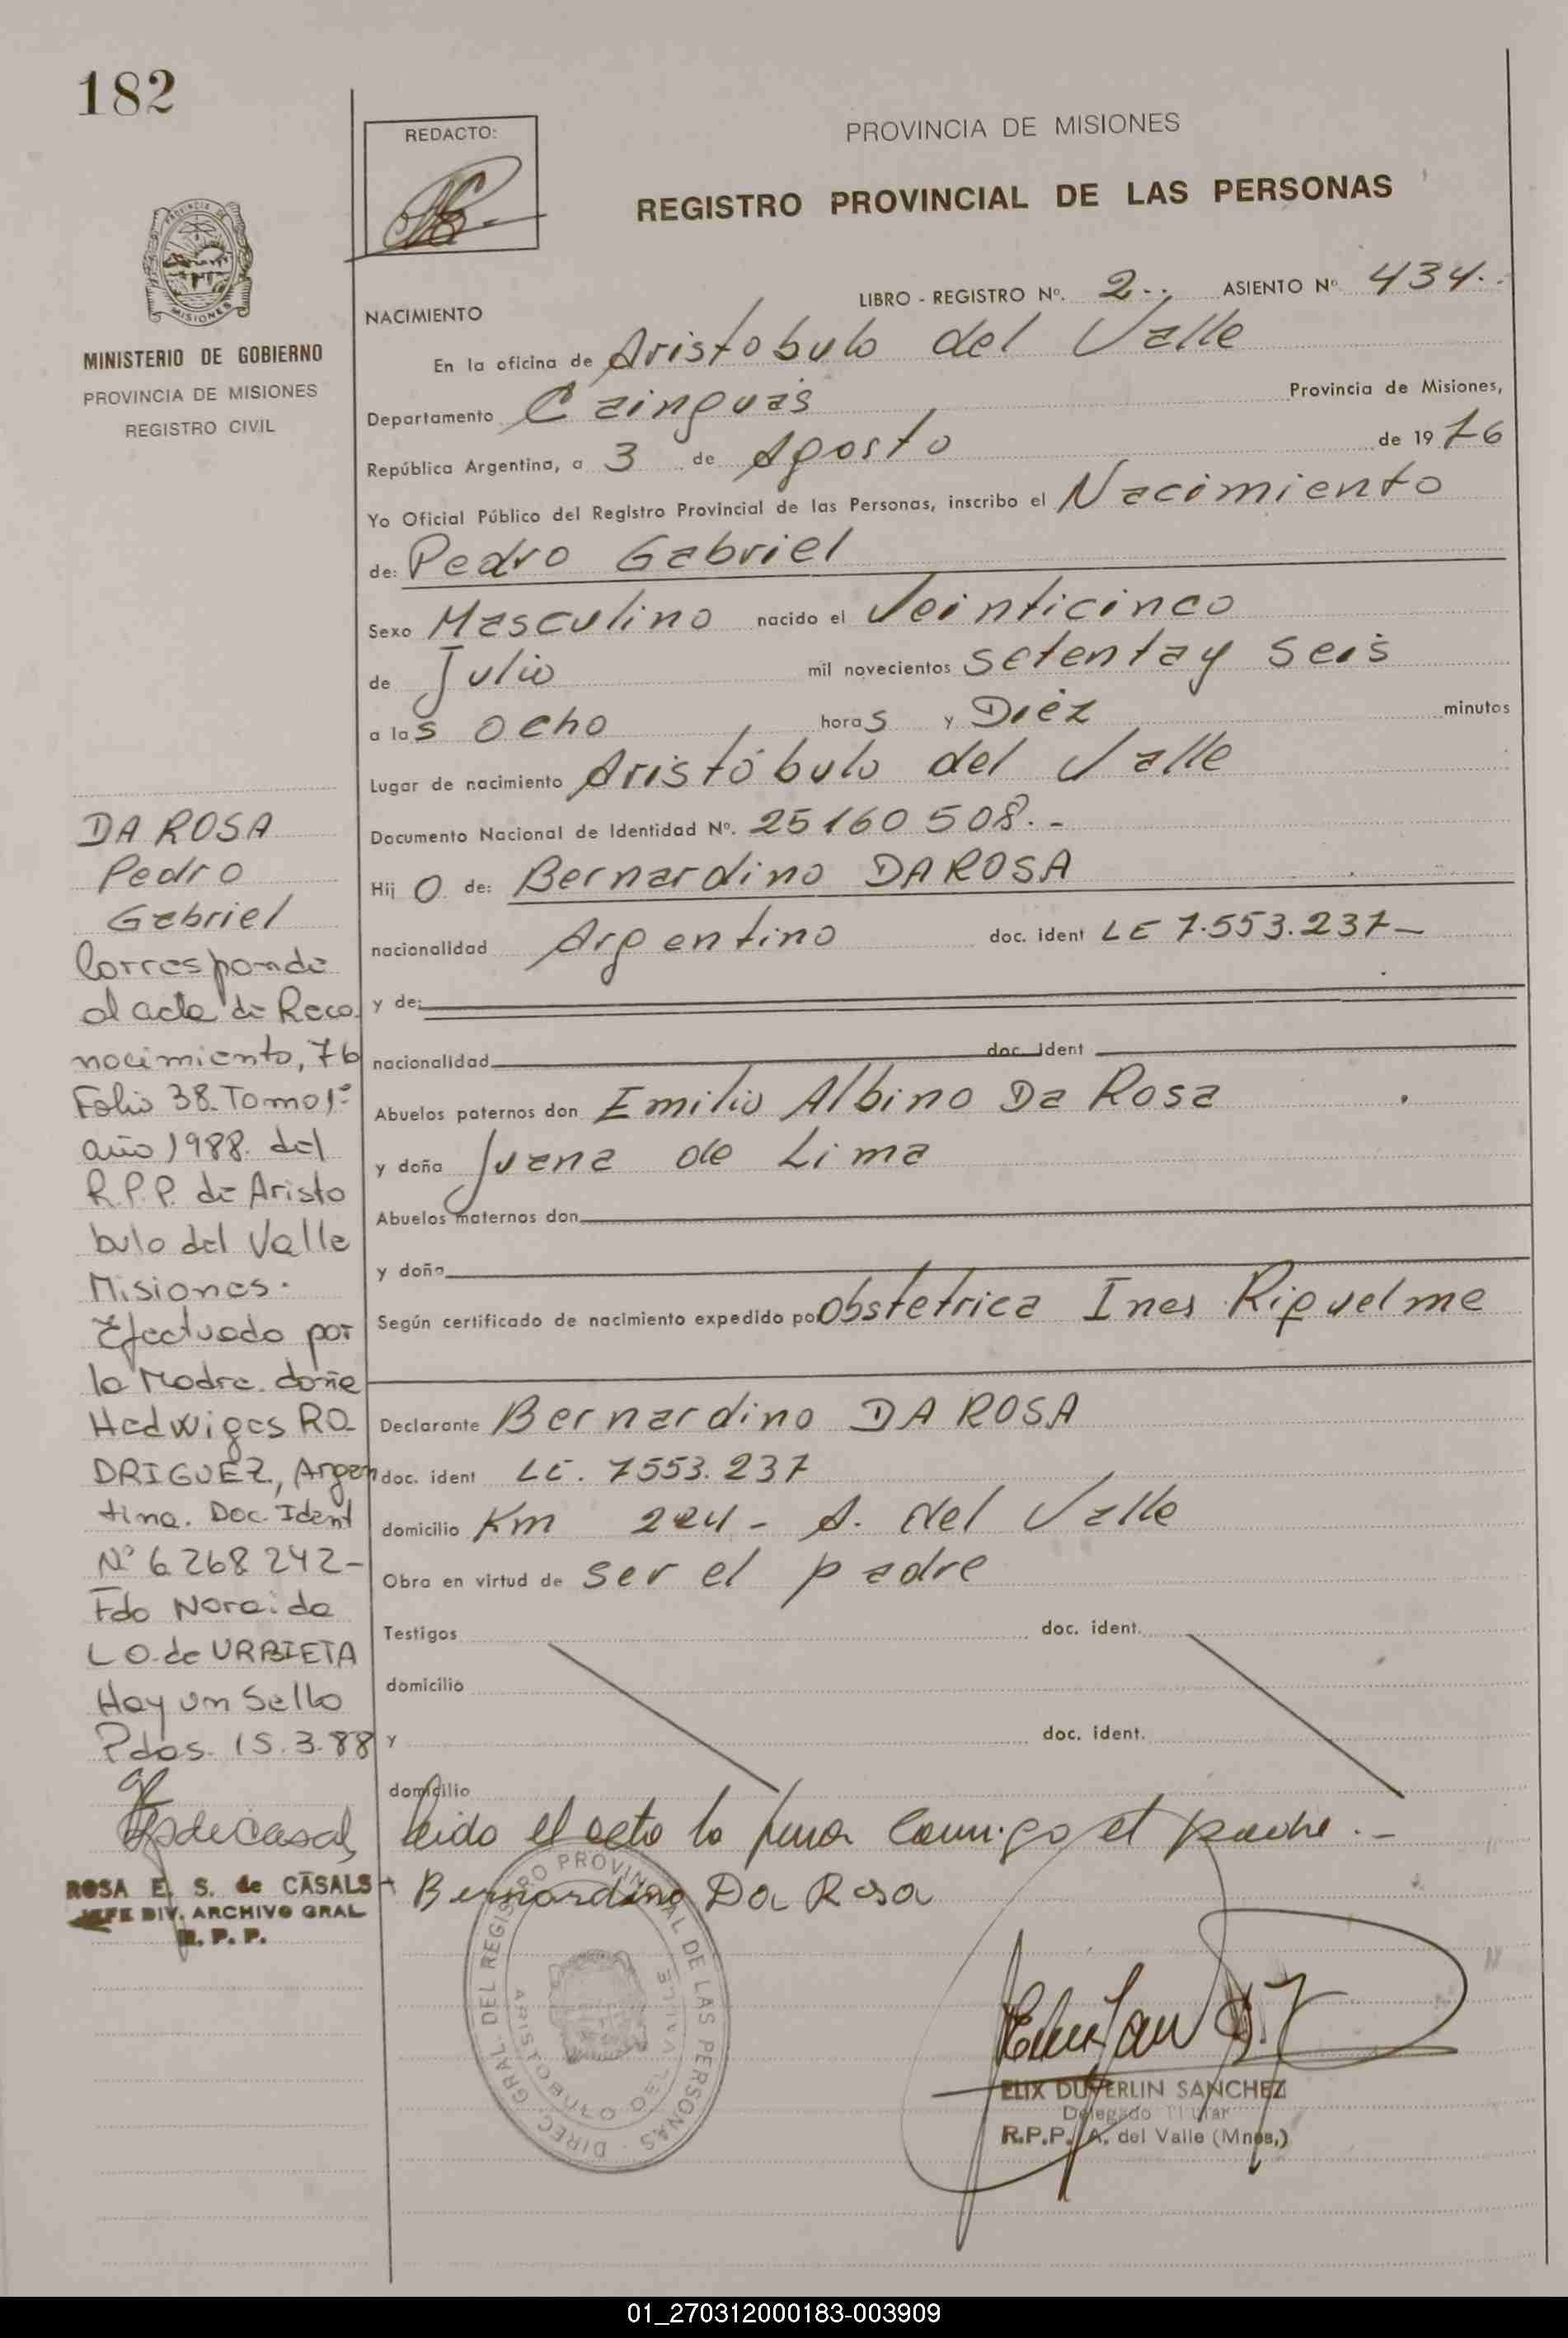 182
REDACTO:
PROVINCIA DE MISIONES
REGISTRO PROVINCIAL DE LAS PERSONAS
PROVINCIA DE
MISIONES
MINISTERIO DE GOBIERNO
PROVINCIA DE MISIONES
REGISTRO CIVIL
LIBRO - REGISTRO Nº. 2.. ASIENTO Nº 434..
NACIMIENTO
En la oficina de Aristobulo del Valle
Departamento Cainguás Provincia de Misiones,
República Argentina, a 3 de Agosto de 19 76
Yo Oficial Público del Registro Provincial de las Personas, inscribo el Nacimiento
de: Pedro Gabriel
Sexo Masculino nacido el Veinticinco
de Julio mil novecientos setenta y seis
a las ocho horas y Diéz minutos
Lugar de nacimiento Aristóbulo del Valle
Documento Nacional de Identidad Nº. 25160508.-
Hijo de: Bernardino DA ROSA
nacionalidad Argentino doc. ident LE 7.553.237-
y de:
nacionalidad doc. ident
Abuelos paternos don Emilio Albino Da Rosa
y doña Juana de Lima
Abuelos maternos don
y doña
Según certificado de nacimiento expedido por Obstetrica Ines Riquelme
Declarante Bernardino DA ROSA
doc. ident LE. 7553.237
domicilio Km 224 - A. del Valle
Obra en virtud de ser el padre
Testigos doc. ident.
domicilio
y doc. ident.
domicilio
leido el acta la firma conmigo el padre.-
Bernardino Da Rosa
DA ROSA
Pedro
Gabriel
Corresponde
al acta de Reco
nocimiento, 76
Folio 38. Tomo 1º
año 1988. del
R.P.P. de Aristo
bulo del Valle
Misiones.
Efectuado por
la Madre. doña
Hedwiges RO
DRIGUEZ, Argen
tina. Doc. Ident
Nº 6268242-
Fdo Noraida
L O. de URBIETA
Hay un Sello
Pdas. 15.3.88
ROSA E. S. de CASALS
JEFE DIV. ARCHIVO GRAL
R. P. P.
DIREC. GRAL. DEL REGISTRO PROVINCIAL DE LAS PERSONAS
ARISTOBULO DEL VALLE
ELIX DUVERLIN SANCHEZ
Delegado Titular
R.P.P. A. del Valle (Mnes,)
01_270312000183-003909